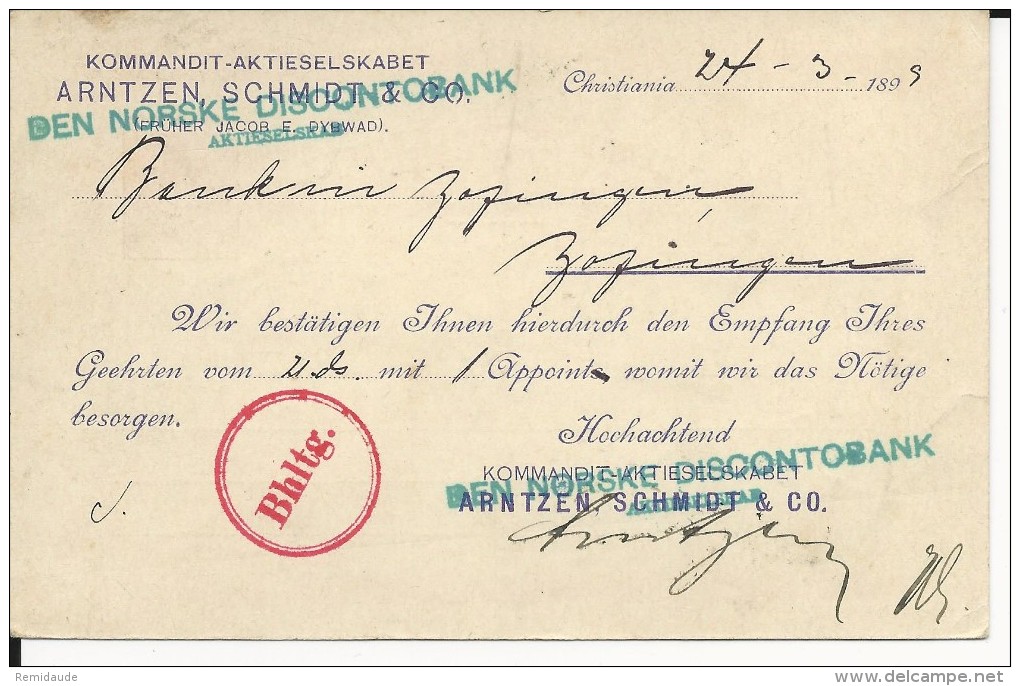 KOMMANDIT-AKTIESELSKABET
ARNTZEN, SCHMIDT & CO.
DEN NORSKE DISCONTOBANK
(FRÜHER JACOB E. DYBWAD).
AKTIESELSKAB
Christiania 24 - 3 - 1899
Bank in Zofingen,
Zofingen
Wir bestätigen Ihnen hierdurch den Empfang Ihres
Geehrten vom 21. ds. mit 1 Appoint, womit wir das Nötige
besorgen.
Hochachtend
Bhltg.
KOMMANDIT-AKTIESELSKABET
DEN NORSKE DISCONTOBANK
ARNTZEN, SCHMIDT & CO.
AKTIESELSKAB
Remidaude
delcampe.net